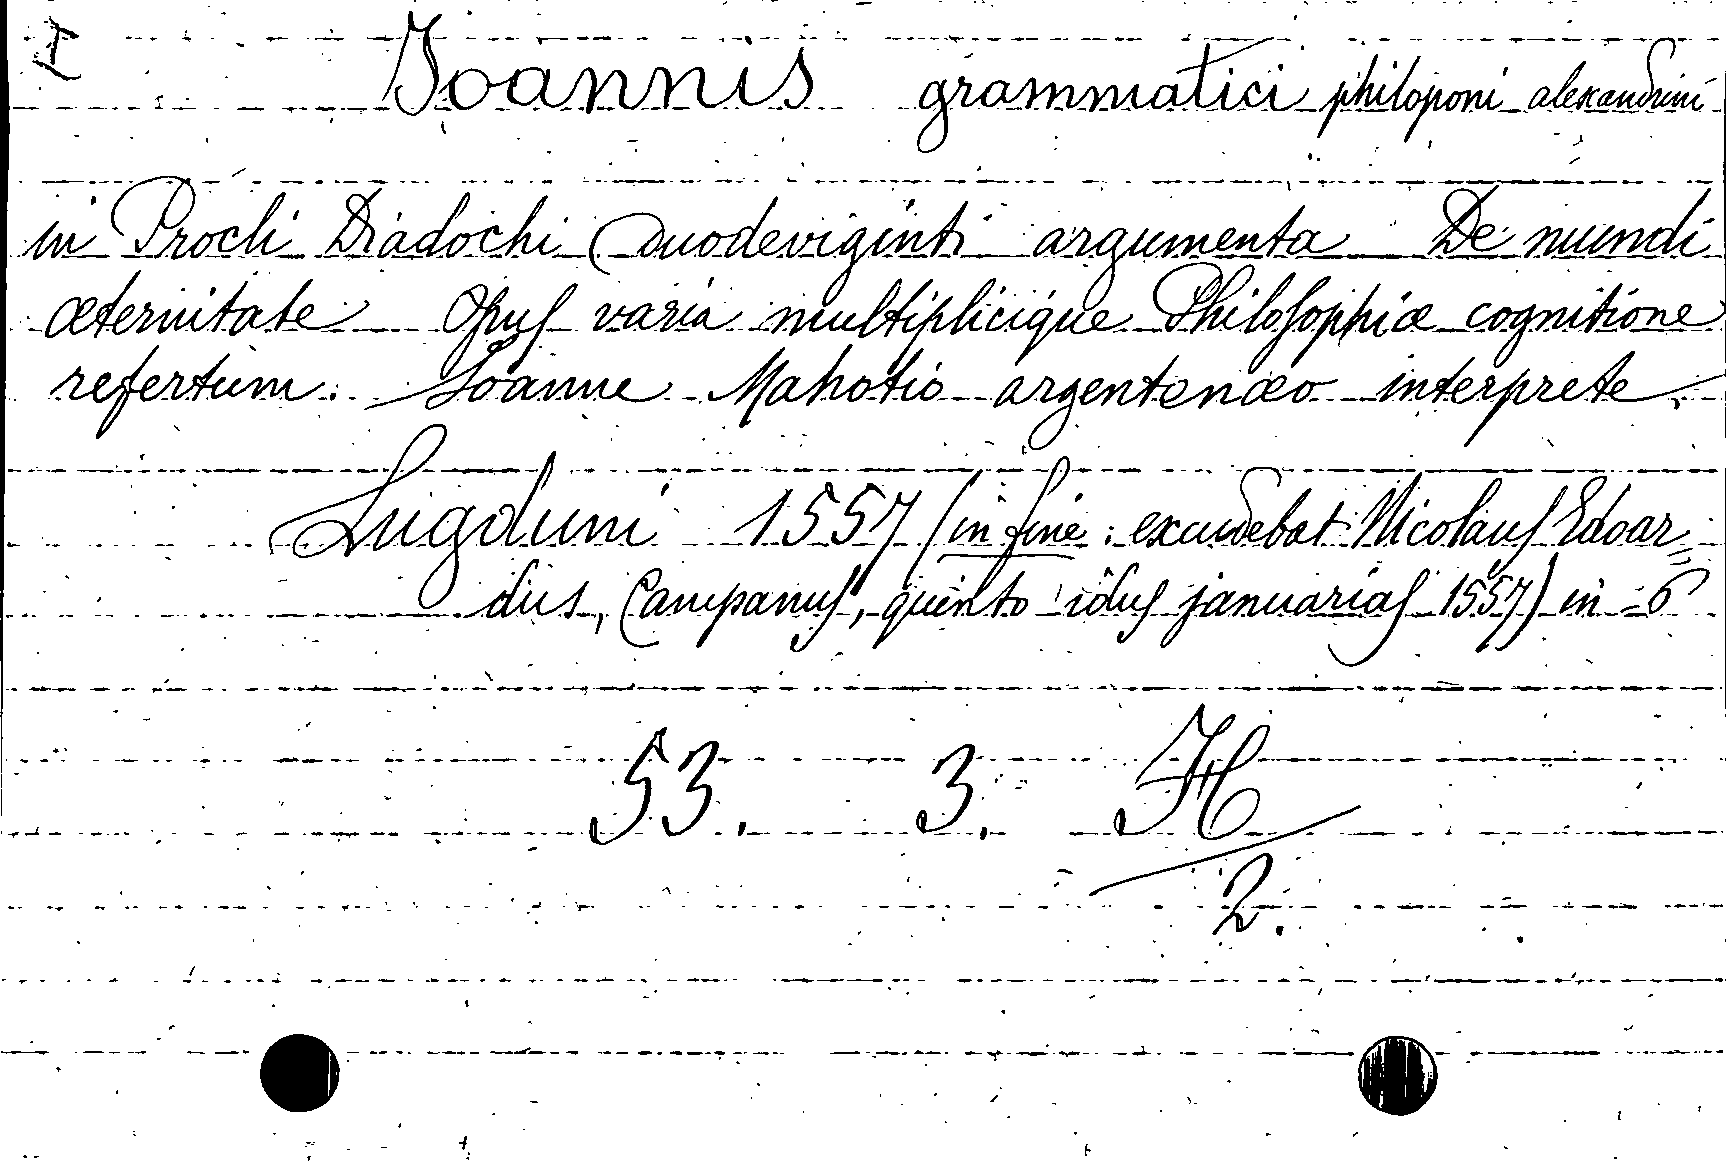 I
Joannis grammatici philoponi alexandrini
in Procli Diadochi duodeviginti argumenta De mundi
æternitate Opuſ varia multiplicique Philoſophiæ cognitione
refertum. Joanne Mahotio argentenæo interprete.
Lugduni 1557 (in fine : excudebat Nicolauſ Edoar=
dus, Campanuſ, quinto iduſ januariaſ 1557) in-6
53. 3. H
2.